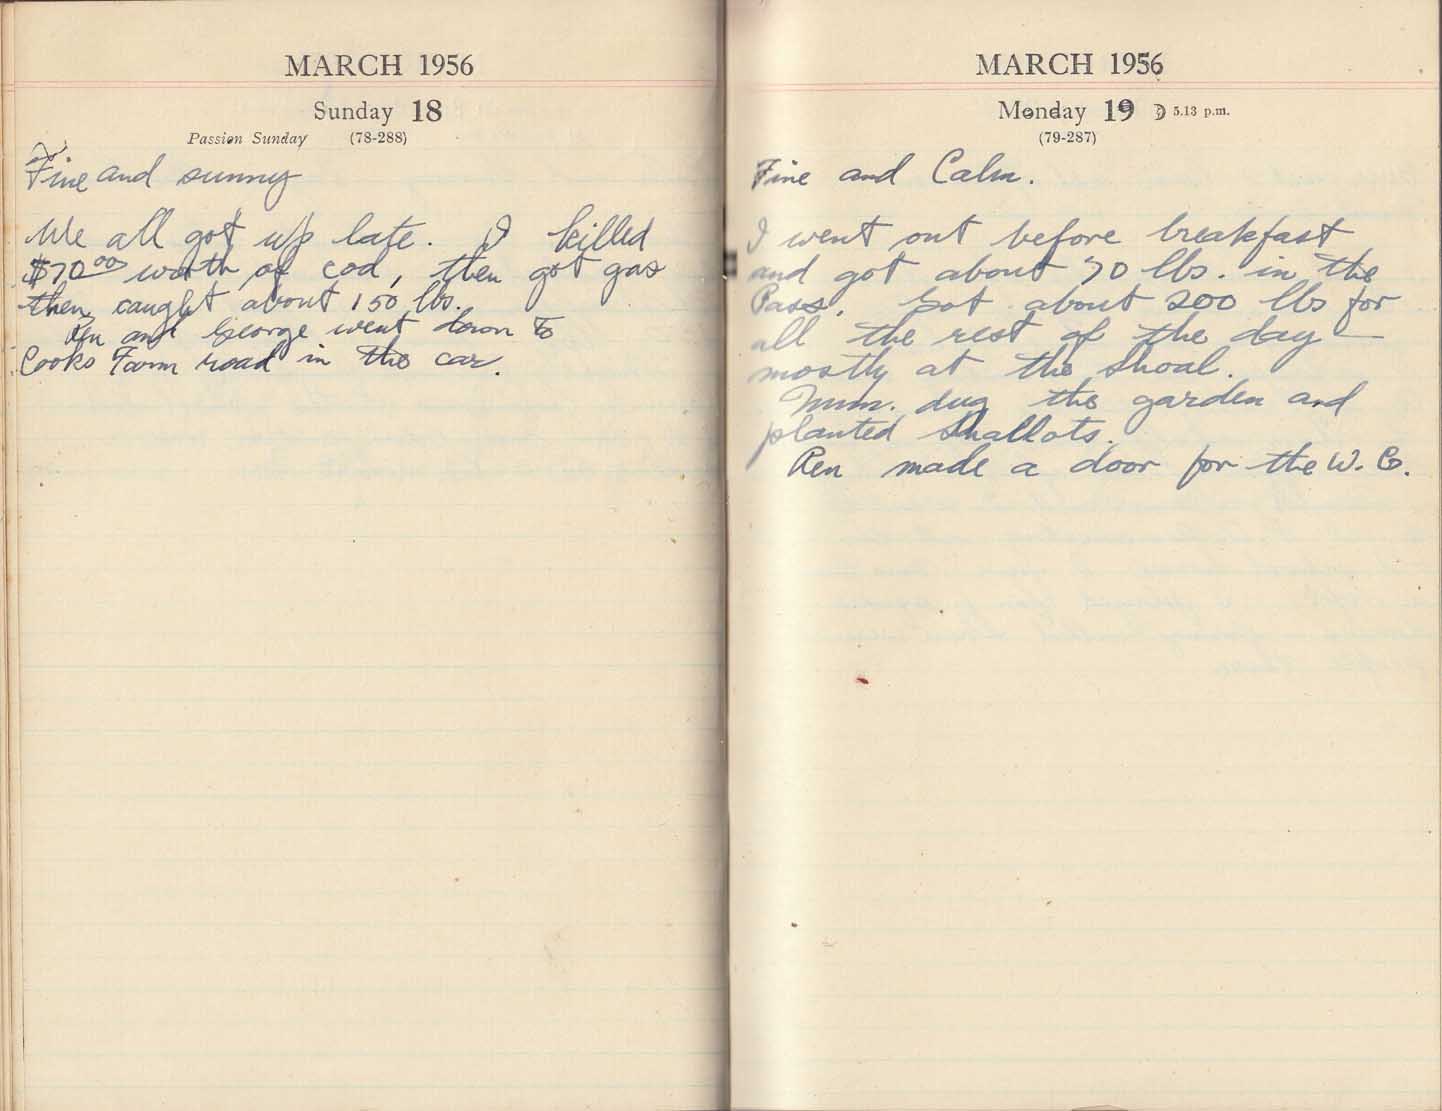 MARCH 1956
Sunday 18
Passion Sunday (78-288)
Fine and sunny
We all got up late. I killed
$70.00 worth of cod, then got gas
then caught about 150 lbs.
Ren and George went down to
Cooks Farm road in the car.
MARCH 1956
Monday 19 5.13 p.m.
(79-287)
Fine and Calm.
I went out before breakfast
and got about 70 lbs. in the
Pass. Got about 200 lbs for
all the rest of the day —
mostly at the shoal.
Mum. dug the garden and
planted shallots.
Ren made a door for the W. C.